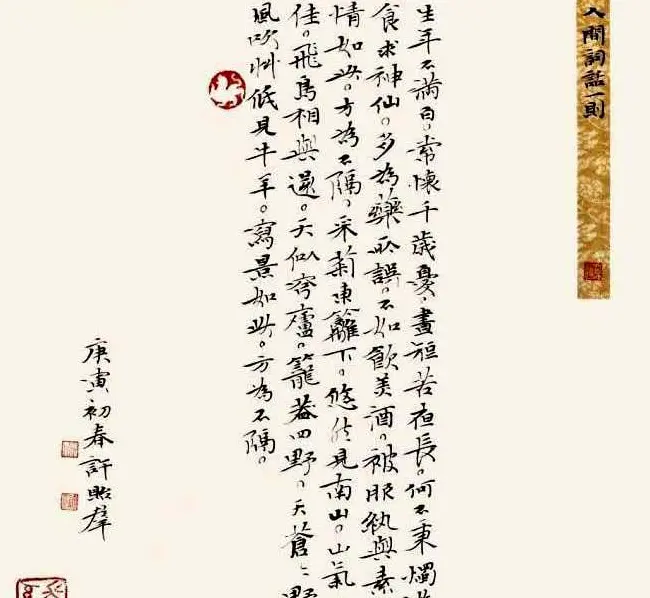 人間詞話一則
生年不滿百。常懷千歲憂、晝短苦夜長。何不秉燭
食求神仙。多為藥所誤。不如飲美酒。被服紈與素
情如此。方為不隔、采菊東籬下。悠然見南山。山氣
佳。飛鳥相與還。天似穹廬。籠蓋四野。天蒼〻野
風吹艸低見牛羊。寫景如此。方為不隔。
庚寅初春許